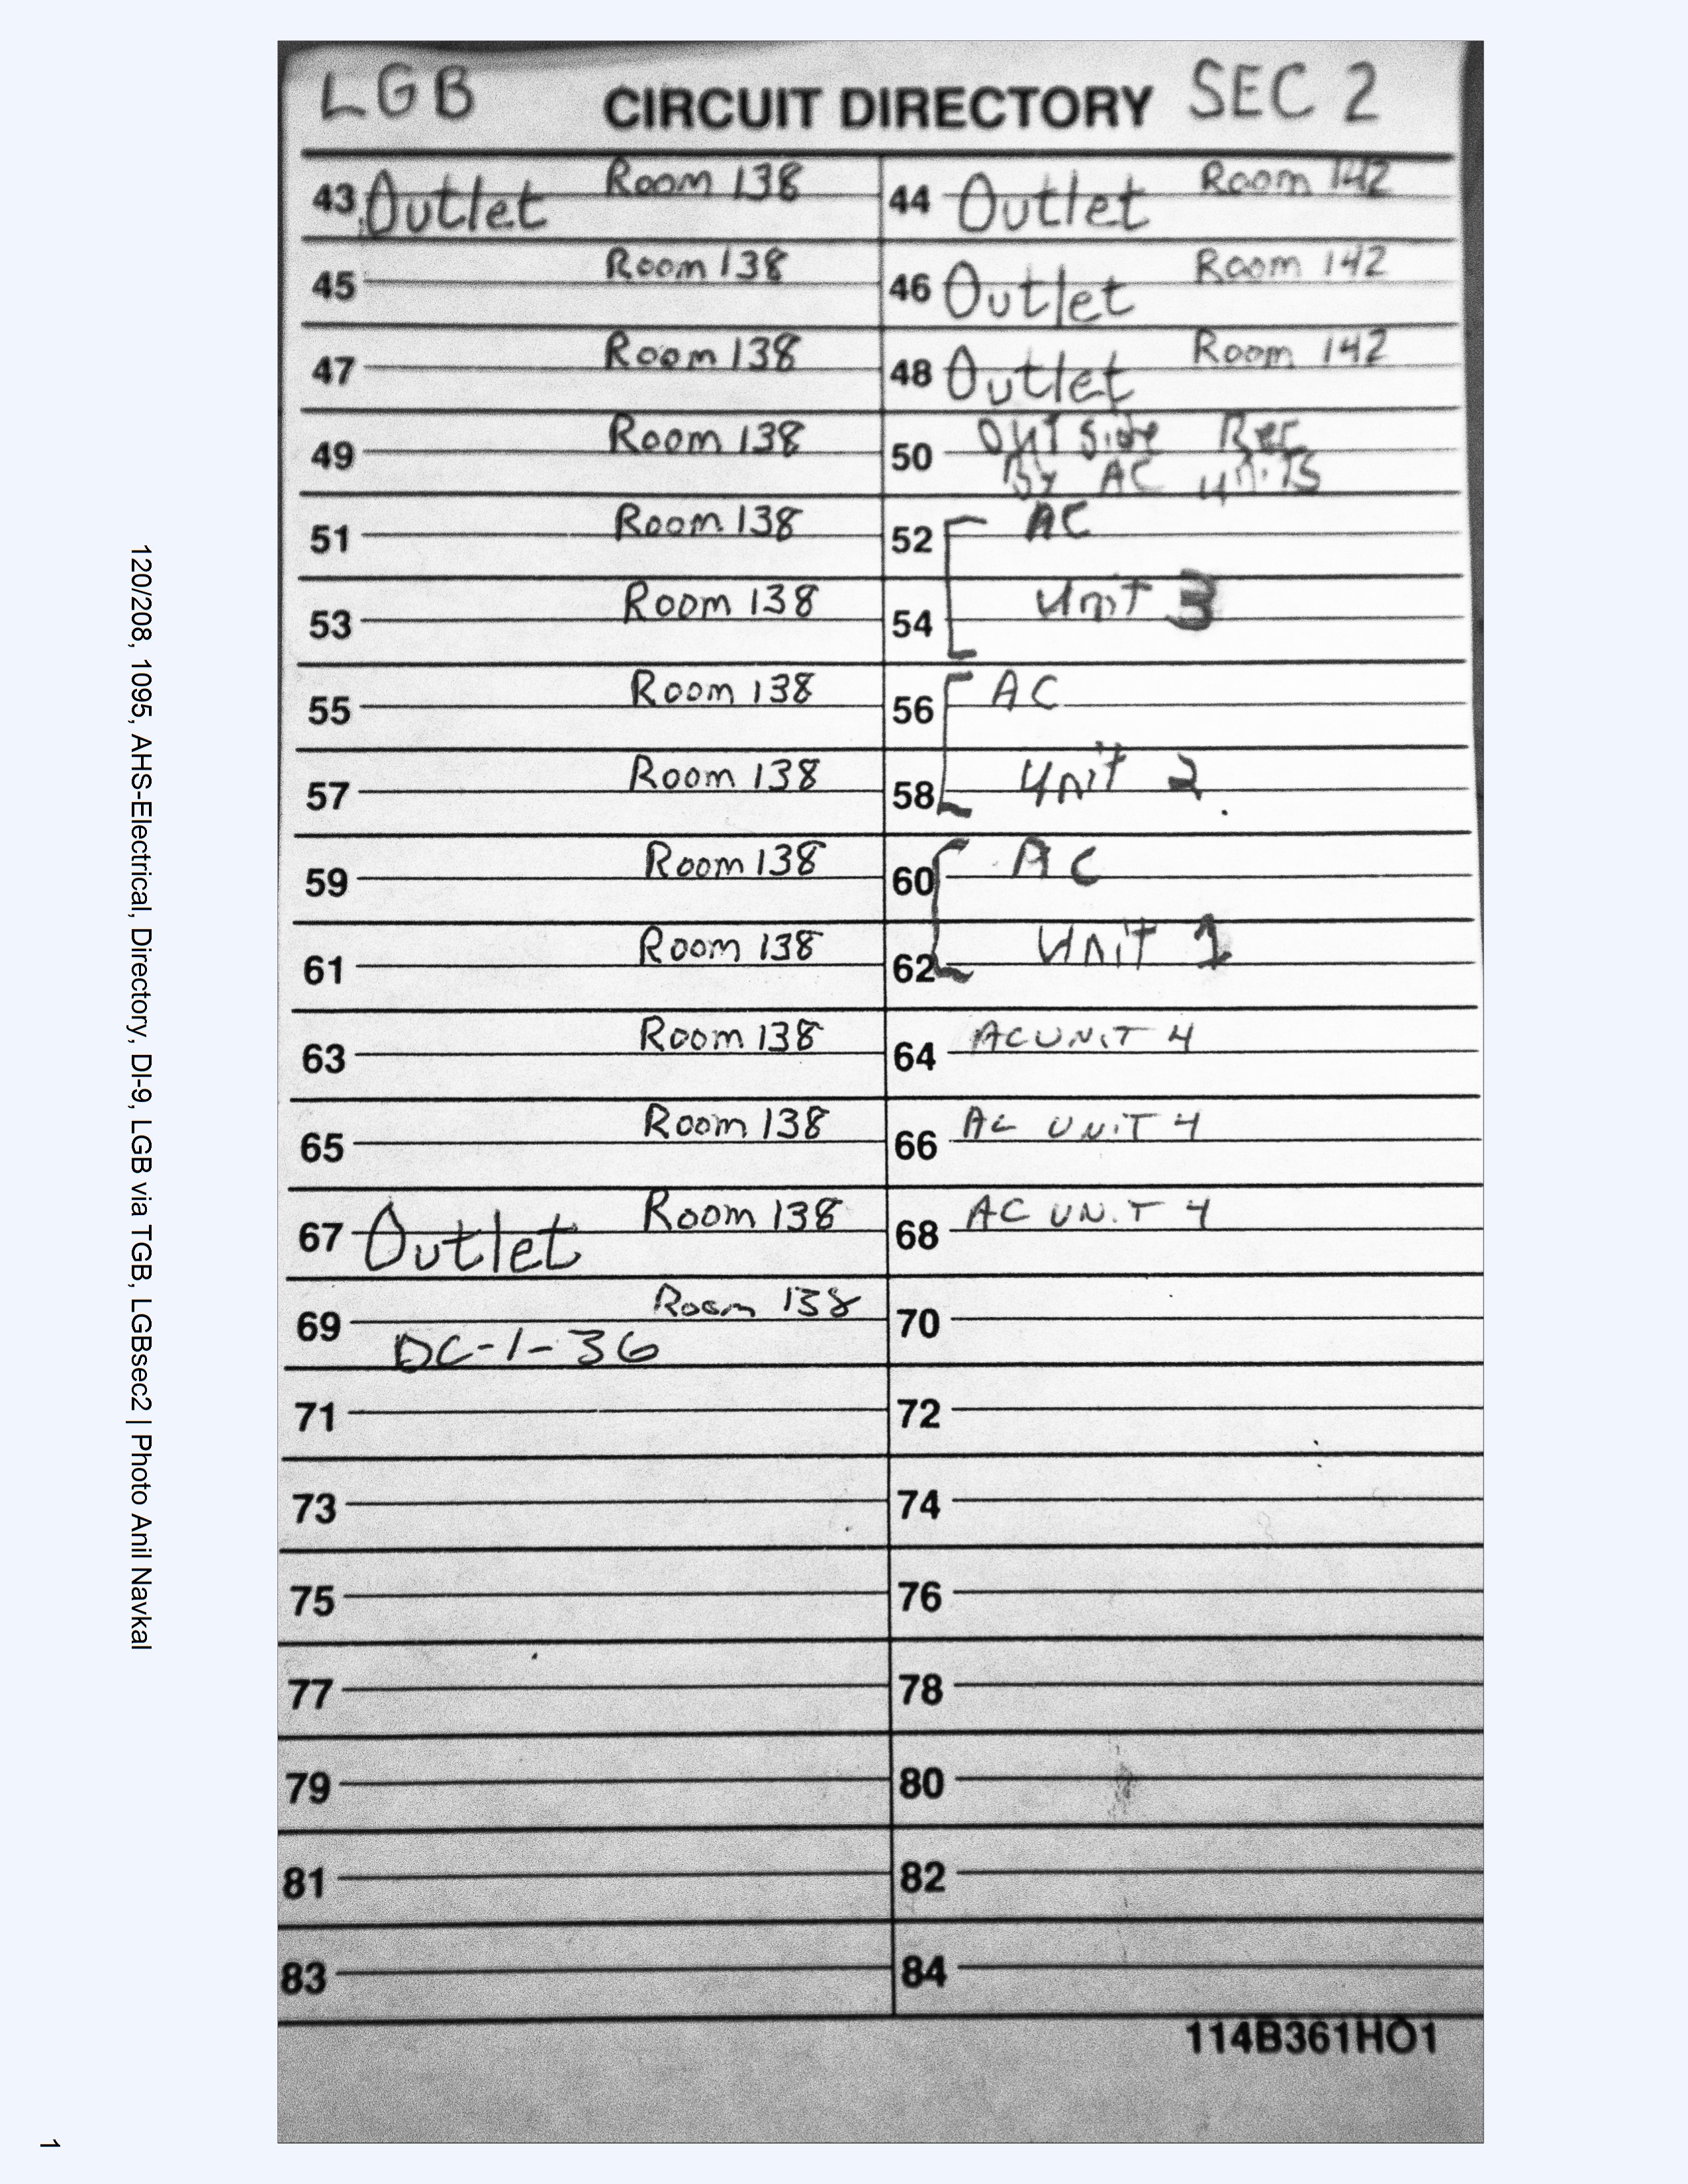 LGB CIRCUIT DIRECTORY SEC 2
43 Outlet Room 138
44 Outlet Room 142
45 Room 138
46 Outlet Room 142
47 Room 138
48 Outlet Room 142
49 Room 138
50 Outside Rec
By AC units
51 Room 138
52 AC
53 Room 138
54 Unit 3
55 Room 138
56 AC
57 Room 138
58 Unit 2
59 Room 138
60 AC
61 Room 138
62 Unit 1
63 Room 138
64 AC UNIT 4
65 Room 138
66 AC UNIT 4
67 Outlet Room 138
68 AC UNIT 4
69 Room 138
DC-1-36
70
71
72
73
74
75
76
77
78
79
80
81
82
83
84
114B361HO1
120/208, 1095, AHS-Electrical, Directory, DI-9, LGB via TGB, LGBsec2 | Photo Anil Navkal
1